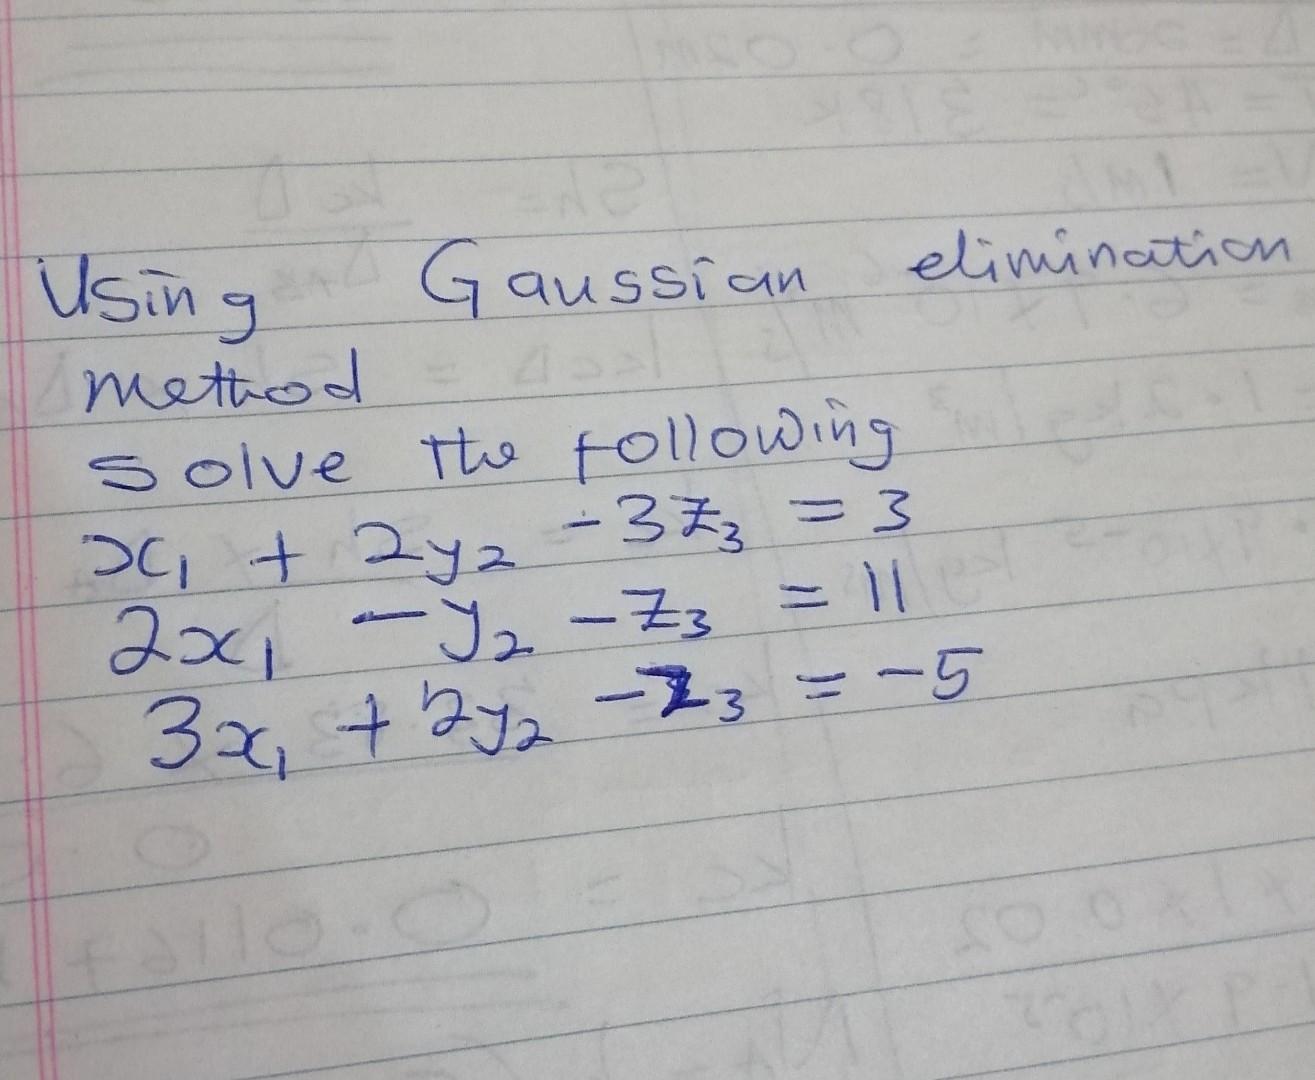 Using Gaussian elimination
method
solve the following
x₁ + 2y₂ - 3z₃ = 3
2x₁ - y₂ - z₃ = 11
3x₁ + 2y₂ - z₃ = -5